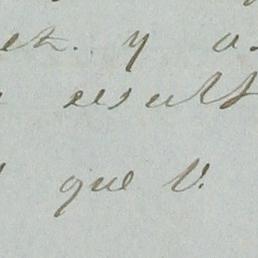 et. y a
result
que V.